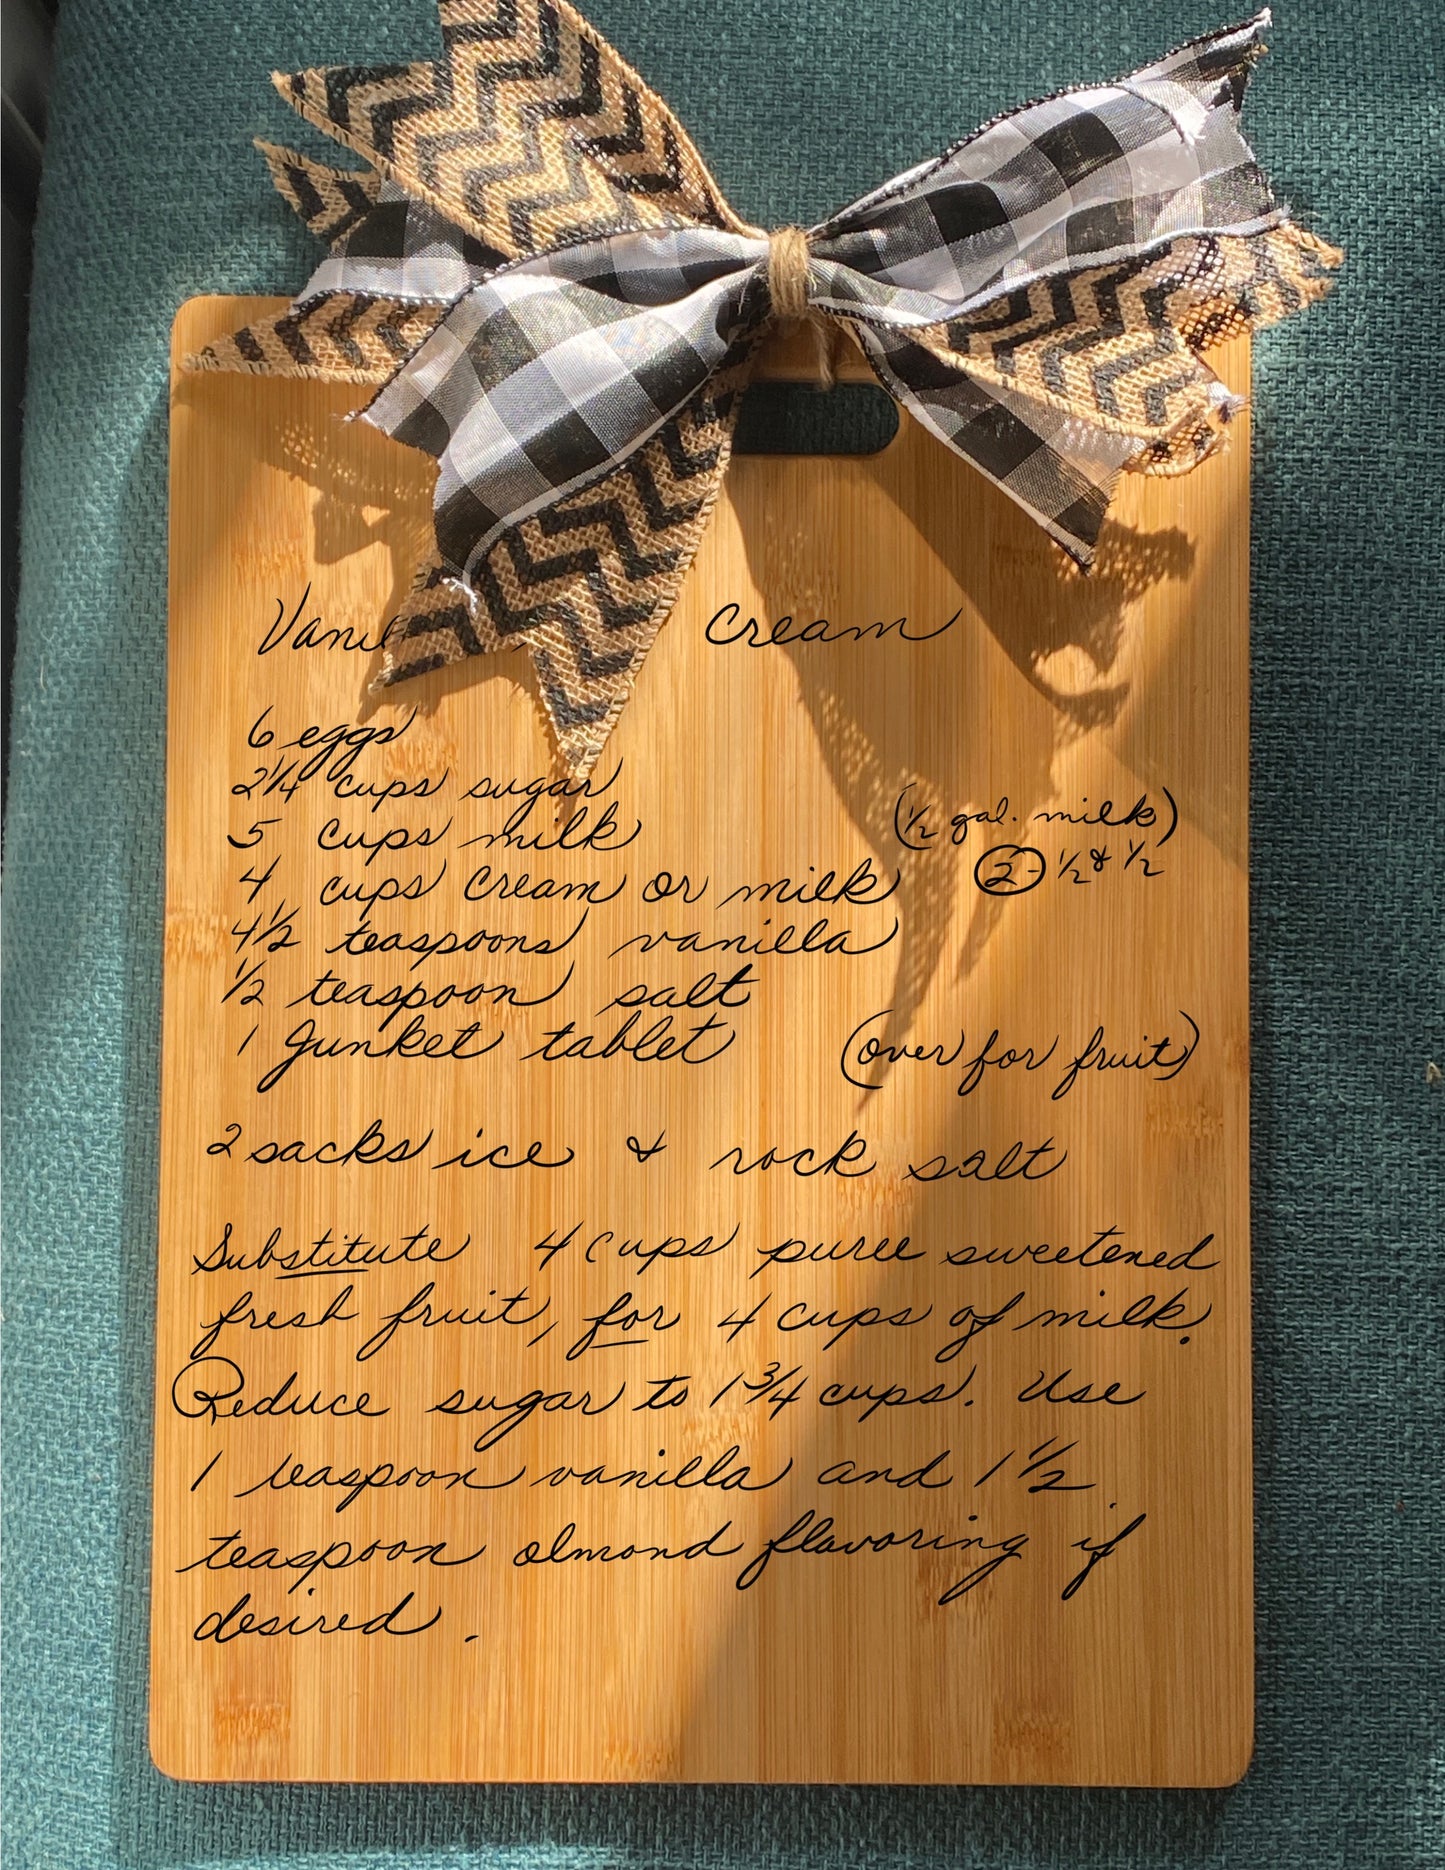 Cream
6 eggs
2 1/4 cups sugar
5 cups milk (1/2 gal. milk)
4 cups cream or milk 2 - 1/2 & 1/2
4 1/2 teaspoons vanilla
1/2 teaspoon salt
1 Junket tablet (over for fruit)
2 sacks ice & rock salt
Substitute 4 cups puree sweetened
fresh fruit, for 4 cups of milk.
Reduce sugar to 1 3/4 cups. Use
1 teaspoon vanilla and 1 1/2
teaspoon almond flavoring if
desired.